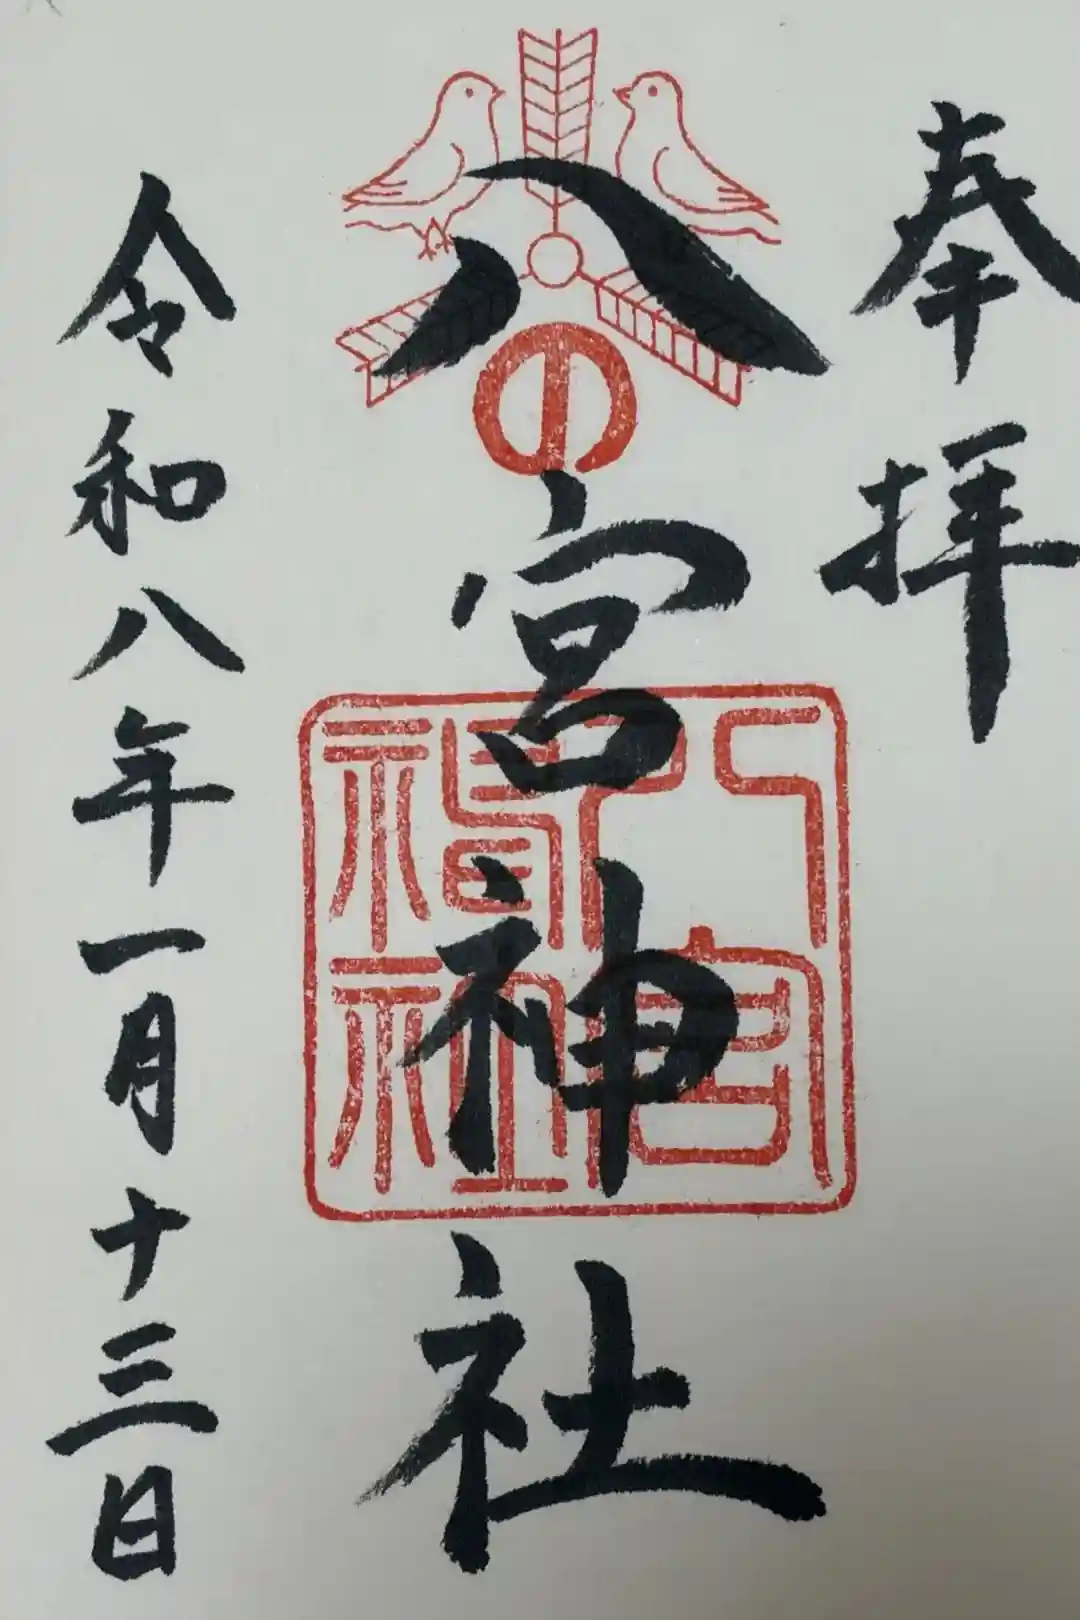 奉拝
八宮神社
八宮神社
令和八年一月十三日